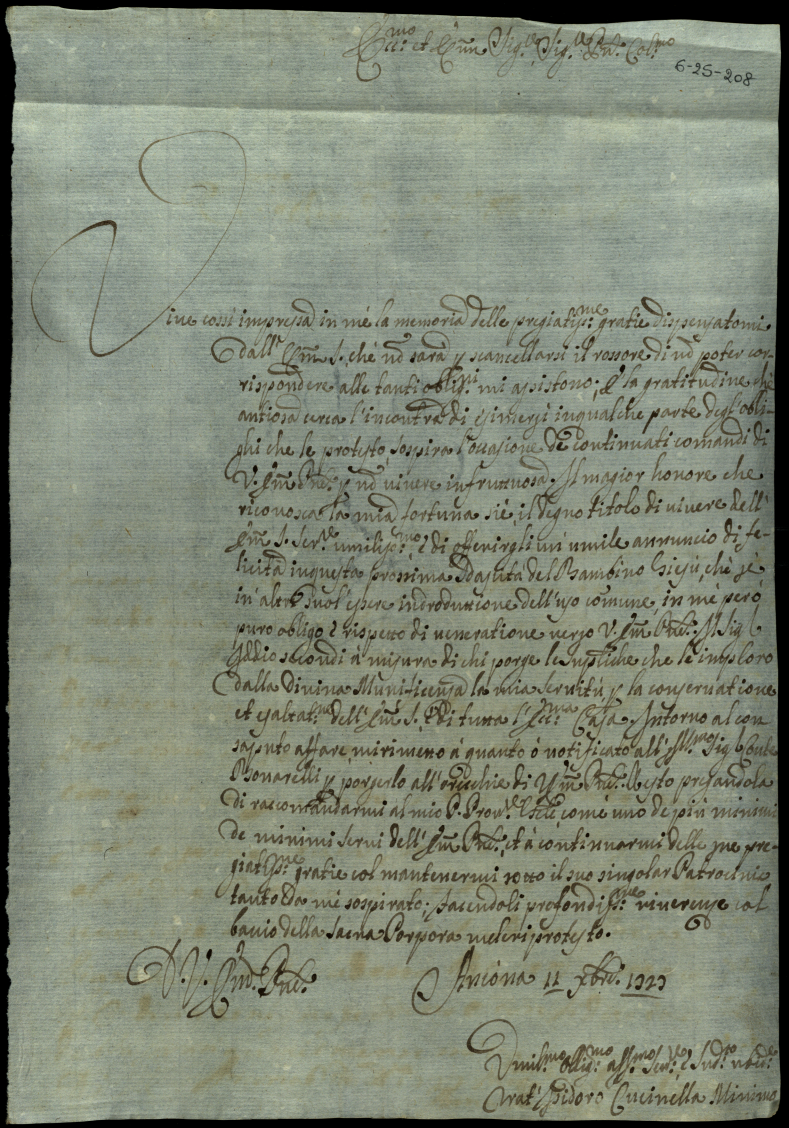 Ecc.mo et Em̃m Sig.re Sig.re Pñe. Col.mo
6-25-208
Viue cossi impressa in mè la memoria delle pregiatiss.me gratie dispensatomi
dall' Em̃ S., chè nõ sarà p scancellarsi il rossore di nõ poter cor-
rispondere alle tanti oblig.ni mi assistono; E' la gratitudine chè
antiosa cerca l'incontra di esimersi in qualche parte degl'obli-
ghi che le protesto, sospira l'occasione de continuati comandi di
V. Em̃ Pñe. p nõ viuere infruttuosa. Il magior honore che
riconosca la mia fortuna si è, il degno titolo di uiuere dell'
Em̃ S. Ser.re umiliss.mo è di offerirgli un umile annuncio di fe-
licità in questa prossima Nascita del Bambino Giesù, chè se
in altri suol essere indroduzione dell'uso comune, in mè però
puro obligo è rispetto di ueneratione uerso V. Em̃ Pñe. Il Sig.
Iddio secondi à misura di chi porge le suppliche che le imploro
dalla Diuina Munificensa la mia seruitù p la conseruatione
et esaltat.ne dell' Em̃ S. è di tutta l' Ecc.ma Casa. Intorno al con
saputo affare, mi rimetto à quanto ò notificato all' Ill.mo Sig. Conte
Bonarelli p porgerlo all' orecchie di V. Em̃ Pñe. Resto pregandola
di raccomandarmi al mio P. Prou.le come uno de più minimi
de minimi serui dell' Em̃ Pñe., et à continuarmi delle sue pre-
giatiss.me gratie col mantenermi sotto il suo singolar Patrocinio
tanto da mè sospirato; facendoli profondiss.me riuerenze col
bacio della Sacra Porpora meleri protesto.
D. V. Em̃. Pñe. Ancona 11 Xbre. 1723
Umil.mo Oblig.mo aff.mo Ser.re è Sud.to
Frat' Isidoro Cucinella Minimo